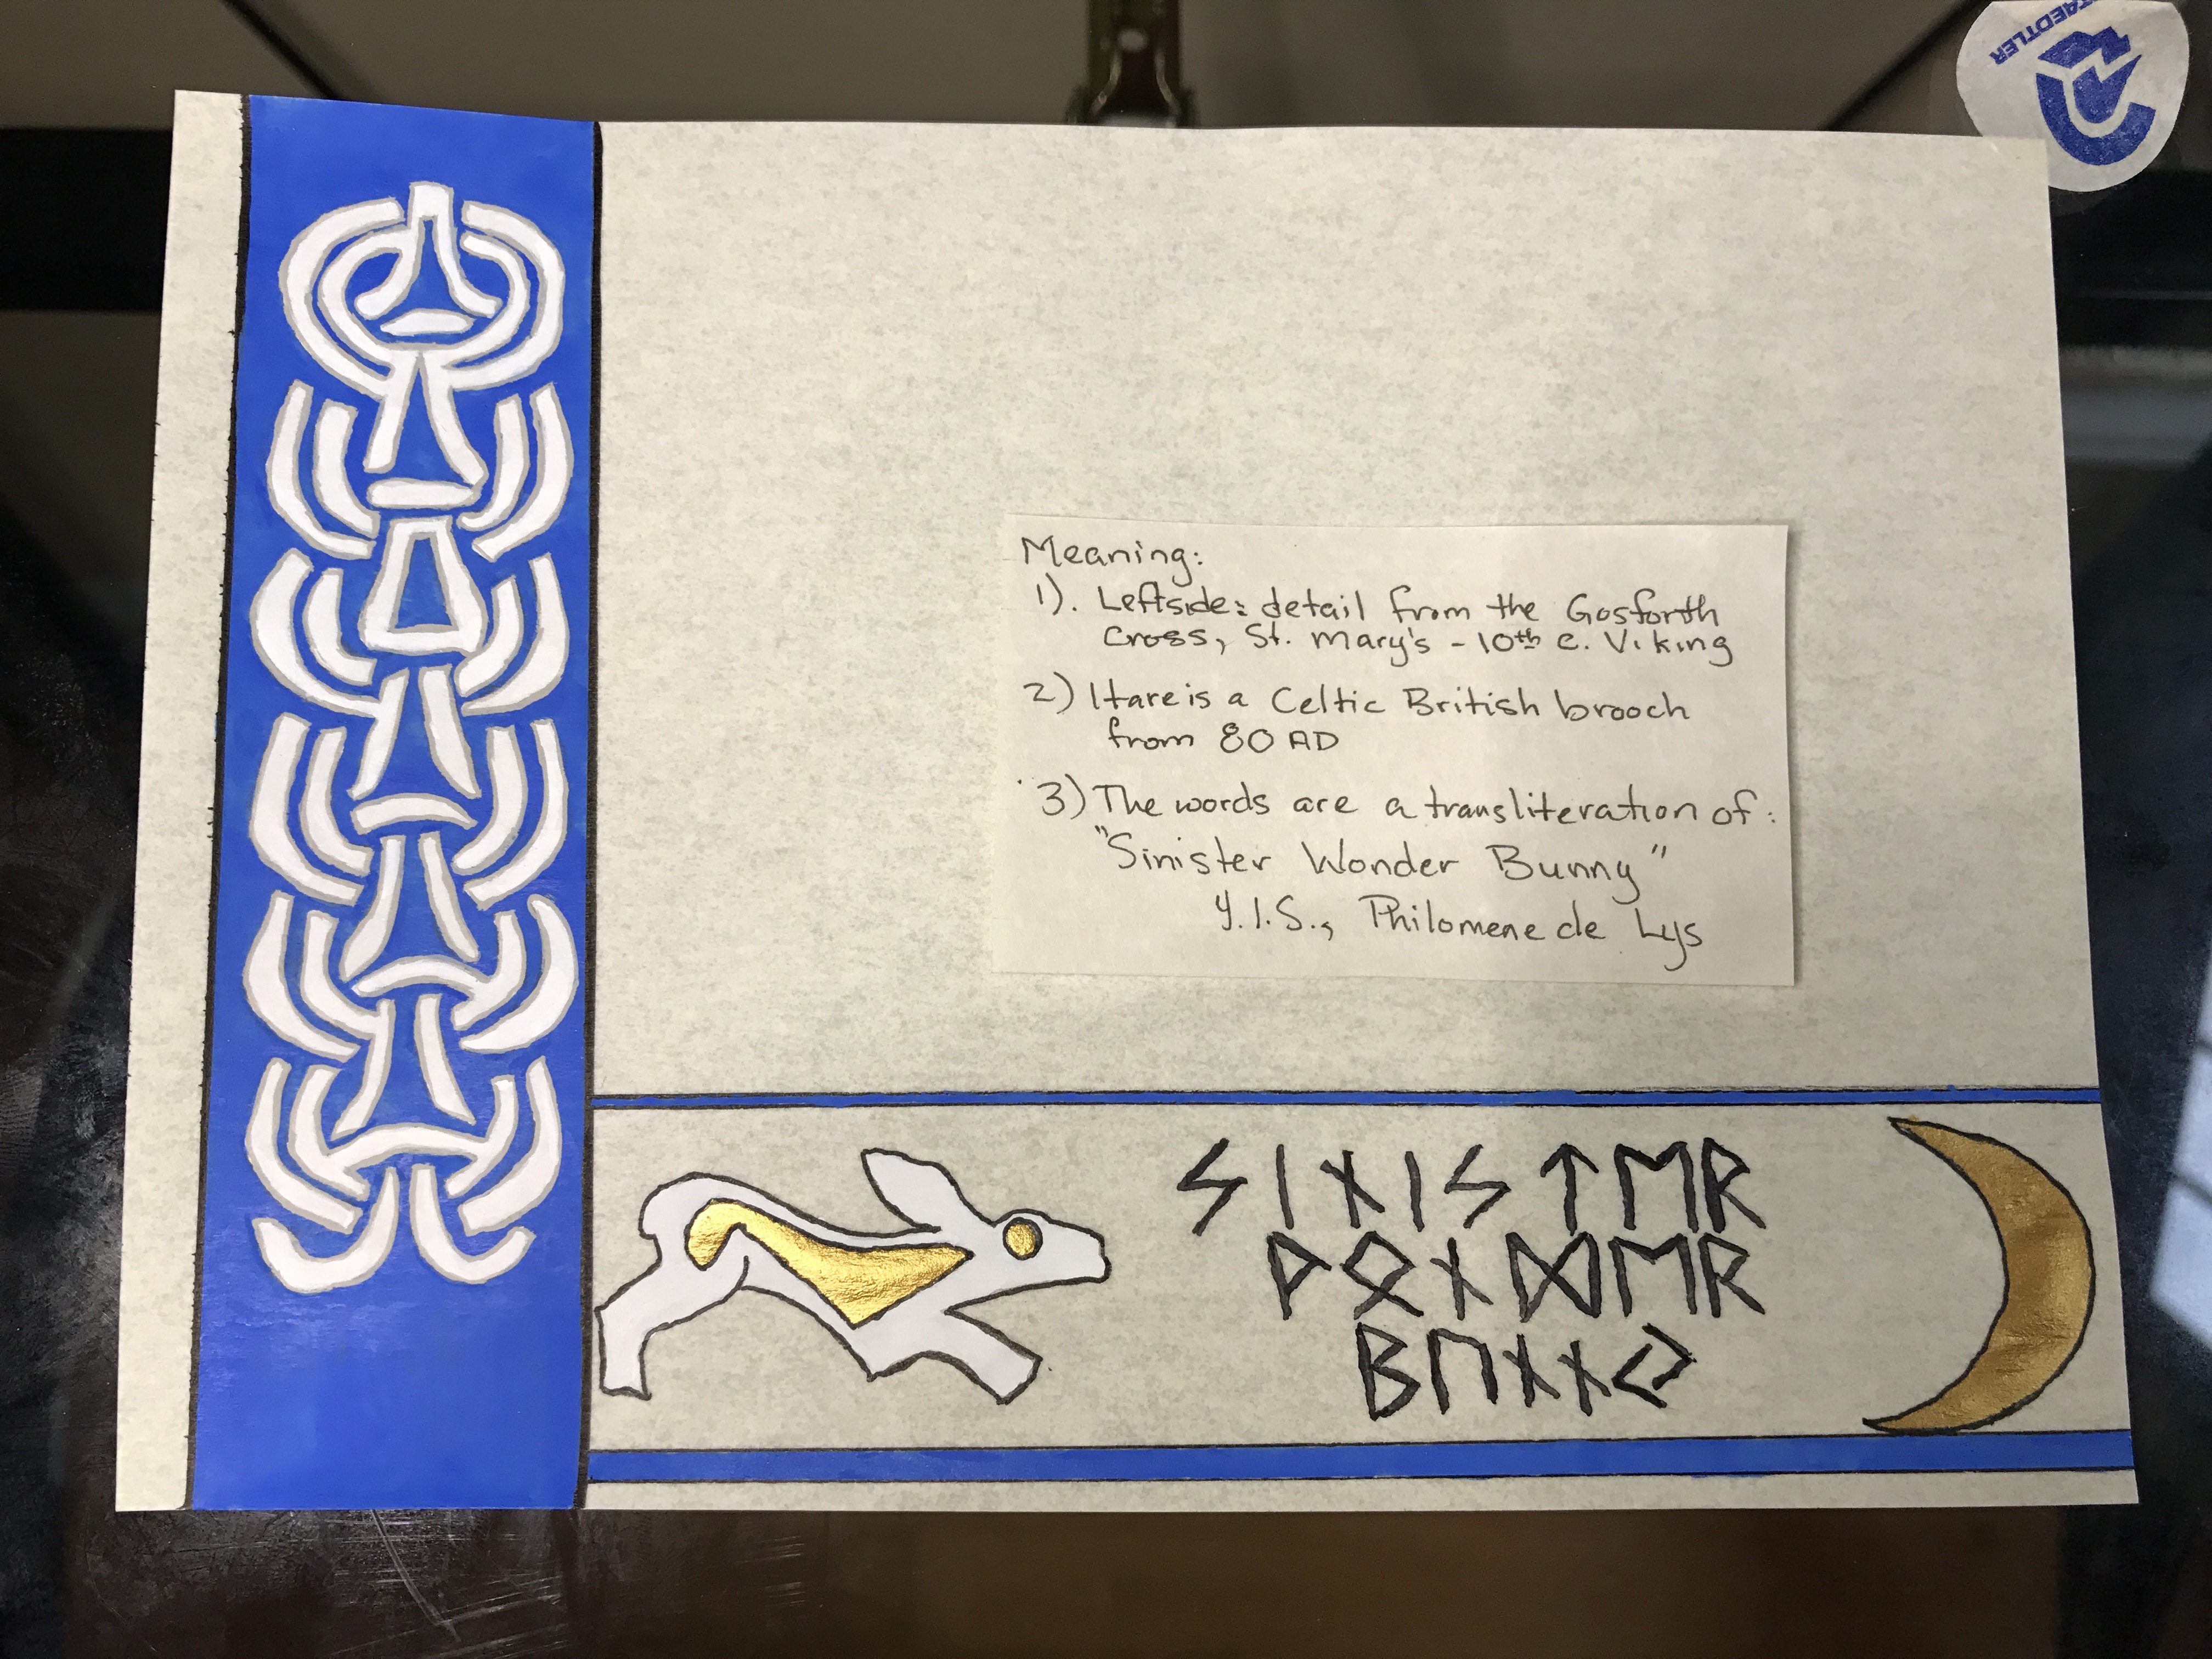 STAEDTLER
Meaning:
1). Leftside: detail from the Gosforth
cross, St. Mary's - 10th c. Viking
2) Hare is a Celtic British brooch
from 80 AD
3) The words are a transliteration of:
"Sinister Wonder Bunny"
Y.I.S., Philomene de Lys
ᛊᛁᚾᛁᛊᛏᛖᚱ
ᚹᛟᚾᛞᛖᚱ
ᛒᚢᚾᚾᛃ